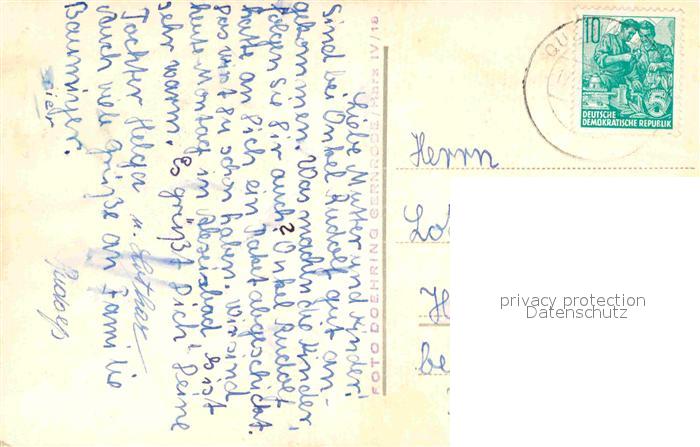 Liebe Mutter und Kinder!
Sind bei Onkel Rudolf gut an-
gekommen. Was machn die Kinder
folgen Sie Dir auch? Onkel Rudolf
hatte an Dich ein Paket abgeschickt.
das wirst du schon haben. Wir sind
heute Montag in Alexisbad Es ist
sehr warm. Es grüßt Dich Deine
Tochter Helga u. Lothar
Auch viele Grüße an Familie
Bauminger.
Rudolf
FOTO DOEHRING GERNRODE/Harz IV/18
10
5
DEUTSCHE
DEMOKRATISCHE REPUBLIK
QUE
Herrn
Lo
H
be
privacy protection
Datenschutz